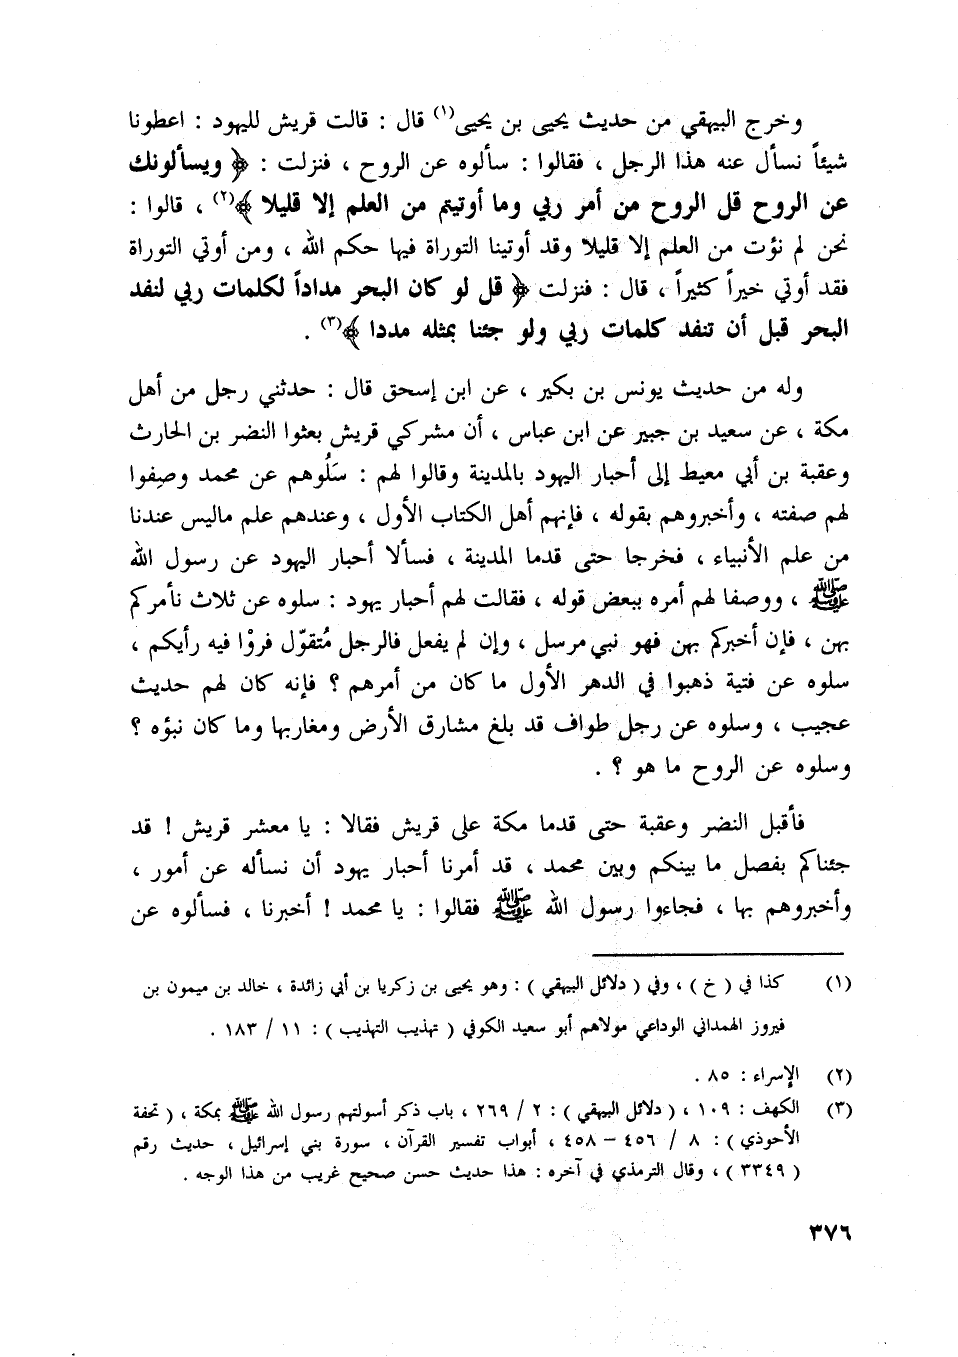 وخرج البيهقي من حديث يحيى بن يحيى(١) قال : قالت قريش لليهود : اعطونا
شيئاً نسأل عنه هذا الرجل ، فقالوا : سألوه عن الروح ، فنزلت : ﴿ ويسألونك
عن الروح قل الروح من أمر ربي وما أوتيتم من العلم إلا قليلا ﴾(٢) ، قالوا :
نحن لم نؤت من العلم إلا قليلا وقد أوتينا التوراة فيها حكم الله ، ومن أوتي التوراة
فقد أوتي خيراً كثيراً ، قال : فنزلت ﴿ قل لو كان البحر مداداً لكلمات ربي لنفد
البحر قبل أن تنفد كلمات ربي ولو جئنا بمثله مددا ﴾(٣) .
وله من حديث يونس بن بكير ، عن ابن إسحق قال : حدثني رجل من أهل
مكة ، عن سعيد بن جبير عن ابن عباس ، أن مشركي قريش بعثوا النضر بن الحارث
وعقبة بن أبي معيط إلى أحبار اليهود بالمدينة وقالوا لهم : سَلُوهم عن محمد وصِفوا
لهم صفته ، وأخبروهم بقوله ، فإنهم أهل الكتاب الأول ، وعندهم علم ماليس عندنا
من علم الأنبياء ، فخرجا حتى قدما المدينة ، فسألا أحبار اليهود عن رسول الله
ﷺ ، ووصفا لهم أمره ببعض قوله ، فقالت لهم أحبار يهود : سلوه عن ثلاث نأمركم
بهن ، فإن أخبركم بهن فهو نبي مرسل ، وإن لم يفعل فالرجل مُتقوّل فروْا فيه رأيكم ،
سلوه عن فتية ذهبوا في الدهر الأول ما كان من أمرهم ؟ فإنه كان لهم حديث
عجيب ، وسلوه عن رجل طواف قد بلغ مشارق الأرض ومغاربها وما كان نبؤه ؟
وسلوه عن الروح ما هو ؟ .
فأقبل النضر وعقبة حتى قدما مكة على قريش فقالا : يا معشر قريش ! قد
جئناكم بفصل ما بينكم وبين محمد ، قد أمرنا أحبار يهود أن نسأله عن أمور ،
وأخبروهم بها ، فجاءوا رسول الله ﷺ فقالوا : يا محمد ! أخبرنا ، فسألوه عن
(١) كذا في ( خ ) ، وفي ( دلائل البيهقي ) : وهو يحيى بن زكريا بن أبي زائدة ، خالد بن ميمون بن
فيروز الهمداني الوداعي مولاهم أبو سعيد الكوفي ( تهذيب التهذيب ) : ١١ / ١٨٣ .
(٢) الإسراء : ٨٥ .
(٣) الكهف : ١٠٩ ، ( دلائل البيهقي ) : ٢ / ٢٦٩ ، باب ذكر أسولتهم رسول الله ﷺ بمكة ، ( تحفة
الأحوذي ) : ٨ / ٤٥٦ – ٤٥٨ ، أبواب تفسير القرآن ، سورة بني إسرائيل ، حديث رقم
( ٣٣٤٩ ) ، وقال الترمذي في آخره : هذا حديث حسن صحيح غريب من هذا الوجه .
٣٧٦